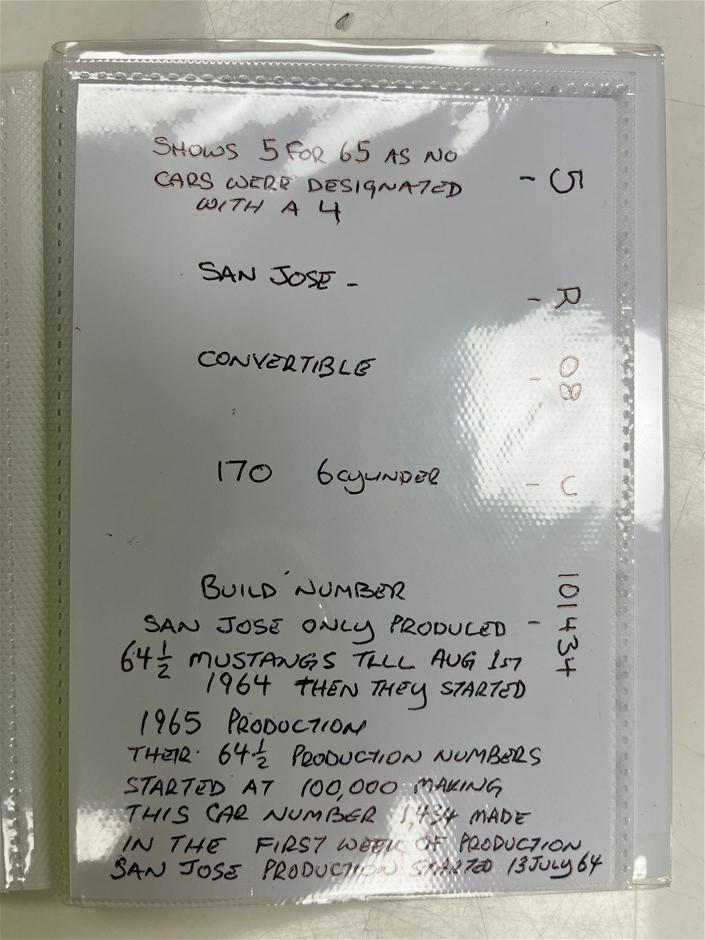 SHOWS 5 FOR 65 AS NO
CARS WERE DESIGNATED
WITH A 4
- 5
SAN JOSE -
- R
CONVERTIBLE
- 08
170 6 CYLINDER
- U
BUILD NUMBER
SAN JOSE ONLY PRODUCED
- 101434
64 1/2 MUSTANGS TILL AUG 1ST
1964 THEN THEY STARTED
1965 PRODUCTION
THEIR 64 1/2 PRODUCTION NUMBERS
STARTED AT 100,000 MAKING
THIS CAR NUMBER 1,434 MADE
IN THE FIRST WEEK OF PRODUCTION
SAN JOSE PRODUCTION STARTED 13 JULY 64